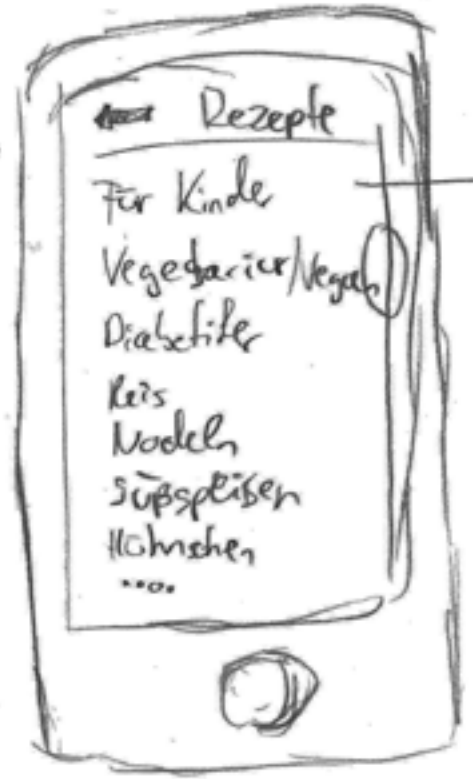 Rezepte
Für Kinder
Vegetarier/Vegan
Diabetiker
Reis
Nudeln
Süßspeisen
Hähnchen
....